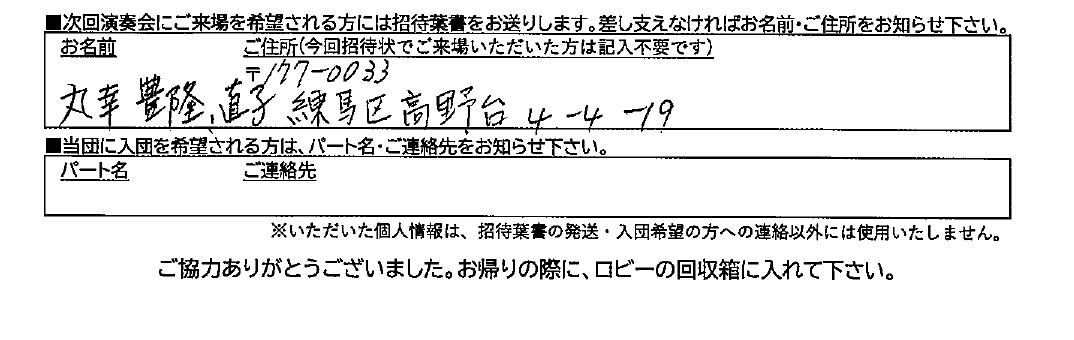 ■次回演奏会にご来場を希望される方には招待葉書をお送りします。差し支えなければお名前・ご住所をお知らせ下さい。
お名前 ご住所(今回招待状でご来場いただいた方は記入不要です)
〒177-0033
丸幸 豊隆、直子 練馬区高野台 4-4-19
■当団に入団を希望される方は、パート名・ご連絡先をお知らせ下さい。
パート名 ご連絡先
※いただいた個人情報は、招待葉書の発送・入団希望の方への連絡以外には使用いたしません。
ご協力ありがとうございました。お帰りの際に、ロビーの回収箱に入れて下さい。